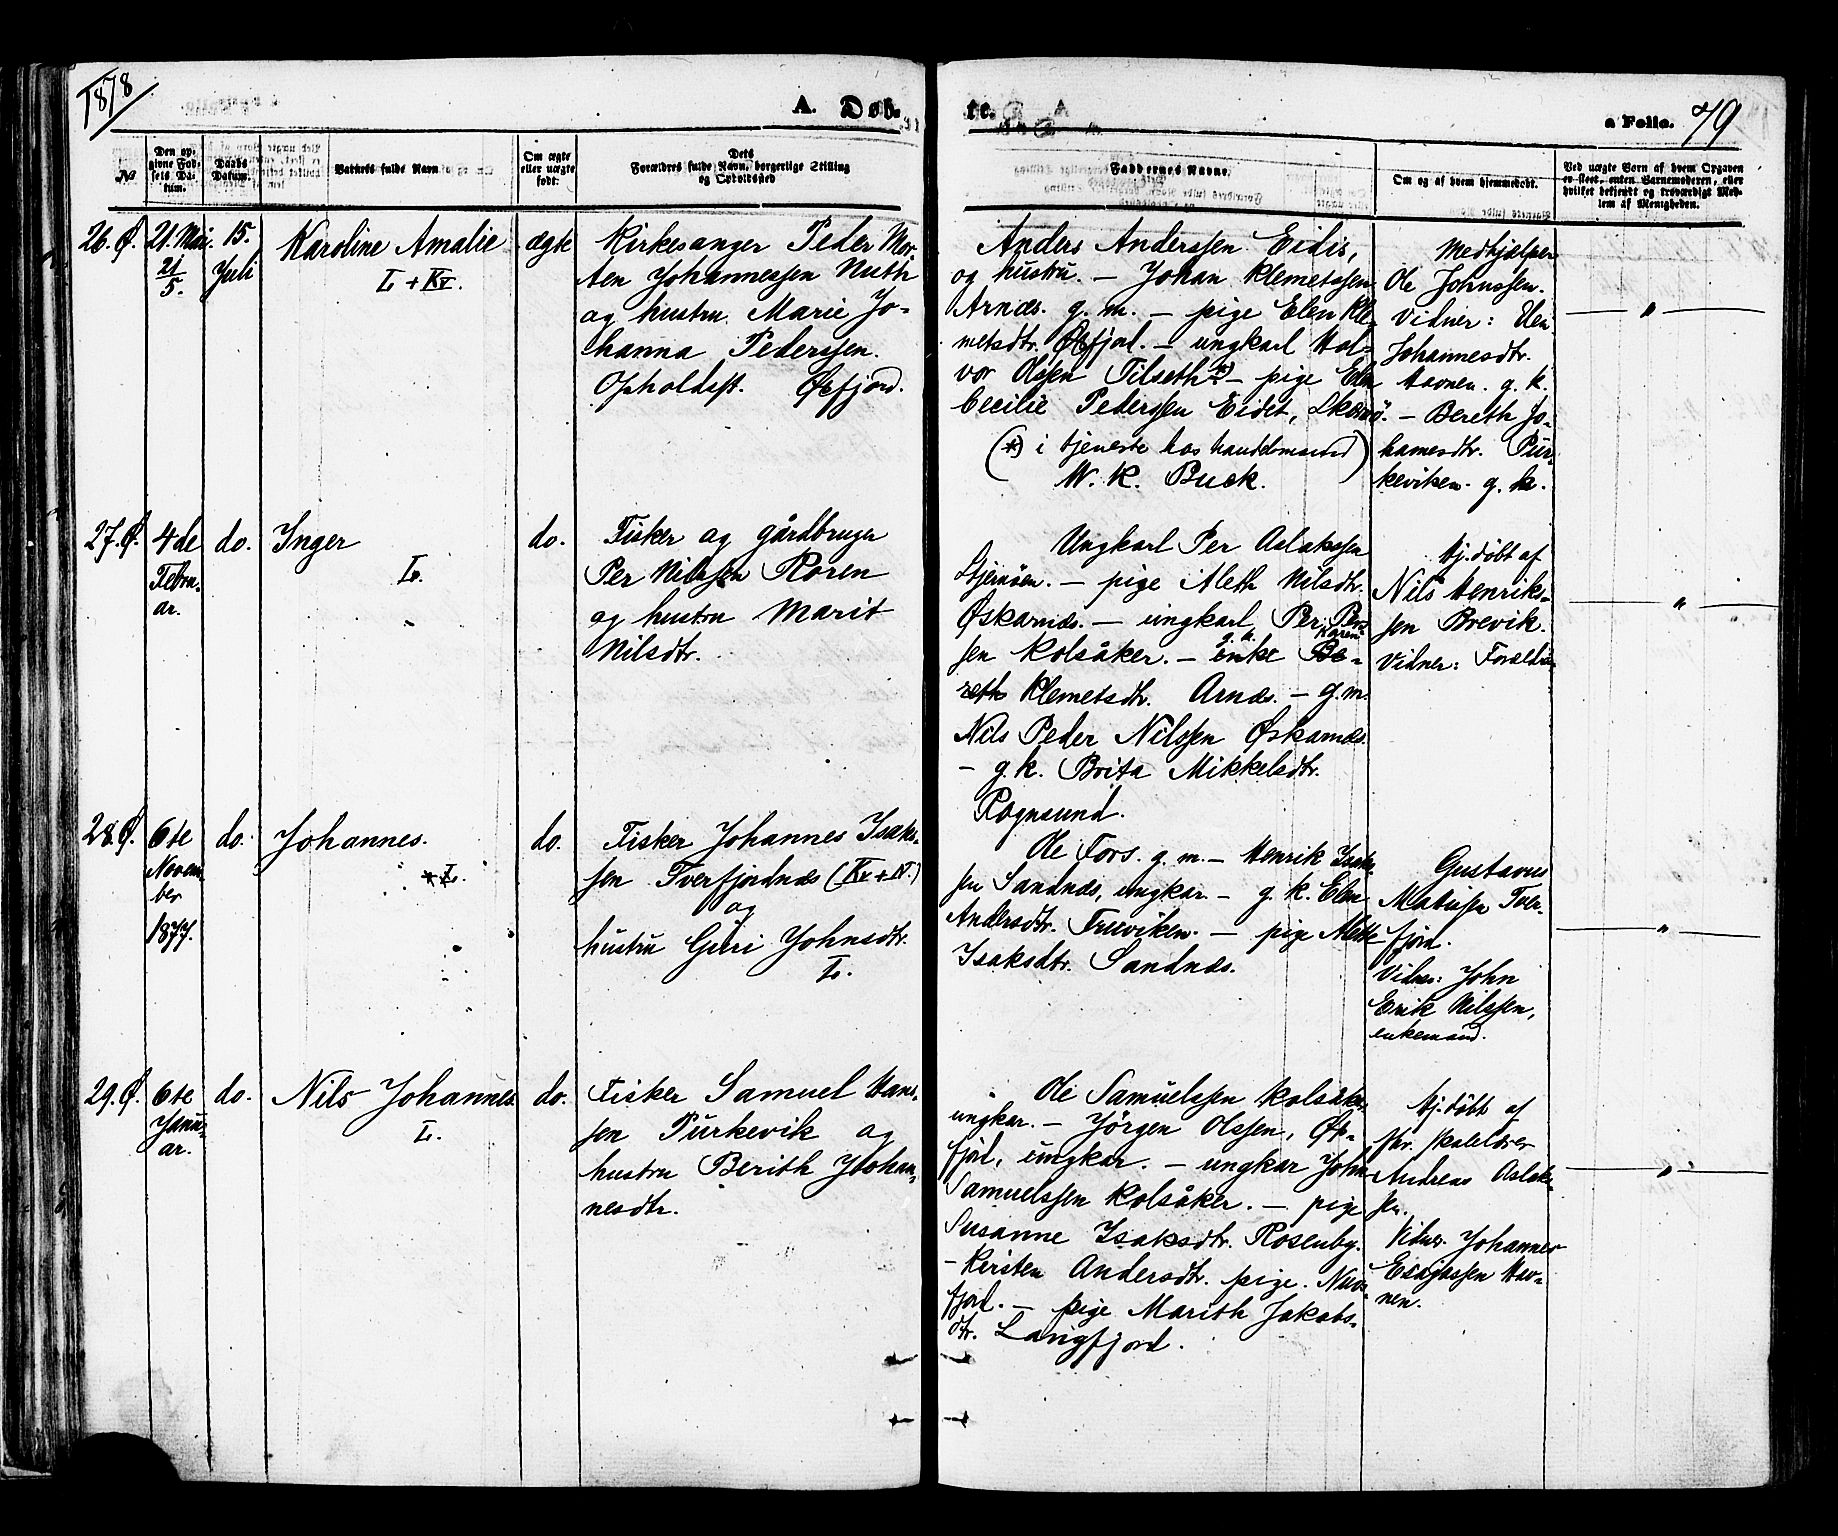 1878
A. Døb-
te.
a Folio. 79
No
Den op-
givne Fød-
sels Da-
tum.
Daabs
Datum.
Barnets fulde Navn
Om ægte
eller uægte
født:
Dets
Forældres fulde Navn, borgerlige Stilling
og Opholdssted
Faddernes Navne.
Om og af hvem hjemmedøbt.
Ved uægte Børn af hvem Opgaven
er skeet, enten Barnemoderen, eller
hvilket bekjendt og troværdigt Med-
lem af Menigheden.
26. Ø.
21. Mai
21/5.
15.
Juli
Karoline Amalie
L + Kv.
ægte
Kirkesanger Peder Mor-
ten Johannessen Nuth
og hustru Marie Jo-
hanna Pederssen.
Opholdsst. Øxfjord.
Anders Anderssen Eidis,
og hustru. — Johan Klemetssen
Arnæs. g. m. — pige Elen Kle-
metsdtr. Øxfjord. — ungkarl Hal-
vor Olssen Tilseth *) — pige Elen
Cecilie Pederssen Eidet,
(*) i tjeneste hos handelsmand)
W. K. Buck.
Medhjælper
Ole Johnssen.
Vidner:
Johannesdtr.
Havnen. g. k.
— Bereth Jo-
hannesdtr. Pur-
keviken. g. k.
— " —
27. Ø.
4de
Febru-
ar.
do.
Inger
L.
do.
Fisker og gårdbruger
Per Nilssen Roren
og hustru Marit
Nilsdtr.
Ungkarl Per Aslakssen
Stjernøen. — pige Aleth Nilsdtr.
Øskarnæs. — ungkarl Per Pers-
sen Kolsåker. — g. k. enke Karen Be-
reth Klemetsdtr. Arnæs. — g. m.
Nils Peder Nilssen Øskarnæs.
— g. k. Brita Mikkelsdtr.
Rognsund.
Hj. døbt af
Nils Henriks-
sen Brevik.
Vidner: Forældre
— " —
28. Ø.
6te
Novem-
ber
1877.
do.
Johannes.
L.
do.
Fisker Johannes Isaks-
sen Tverfjordnæs (Kv + N.)
og
hustru Guri Johnsdtr.
L.
Ole Fors. g. m. — Henrik Isak-
sen Sandnæs, ungkar. — g. k. Elen
Andersdtr. — pige Mette
Isaksdtr. Sandnæs.
Gustavus
Tver-
fjord.
Vidner: John
Erik Nilssen,
enkemand.
— " —
29. Ø.
6te
Janu-
ar.
do.
Nils Johannes
L.
do.
Fisker Samuel Hans-
sen Purkevik og
hustru Berith Johan-
nesdtr.
Ole Samuelssen Kolsåker
ungkar. — Jörgen Olssen, Øx-
fjord, ungkar. — ungkar John
Samuelssen Kolsåker. — pige
Susanne Isaksdtr. Rosenby.
— Kirsten Andersdtr. pige. Nuvs-
fjord. — pige Marith Jakobs-
dtr. Langfjord.
Hj. døbt af
Andreas Aslak-
sen.
Vidner. Johannes
Esajassen Hav-
nen.
— " —